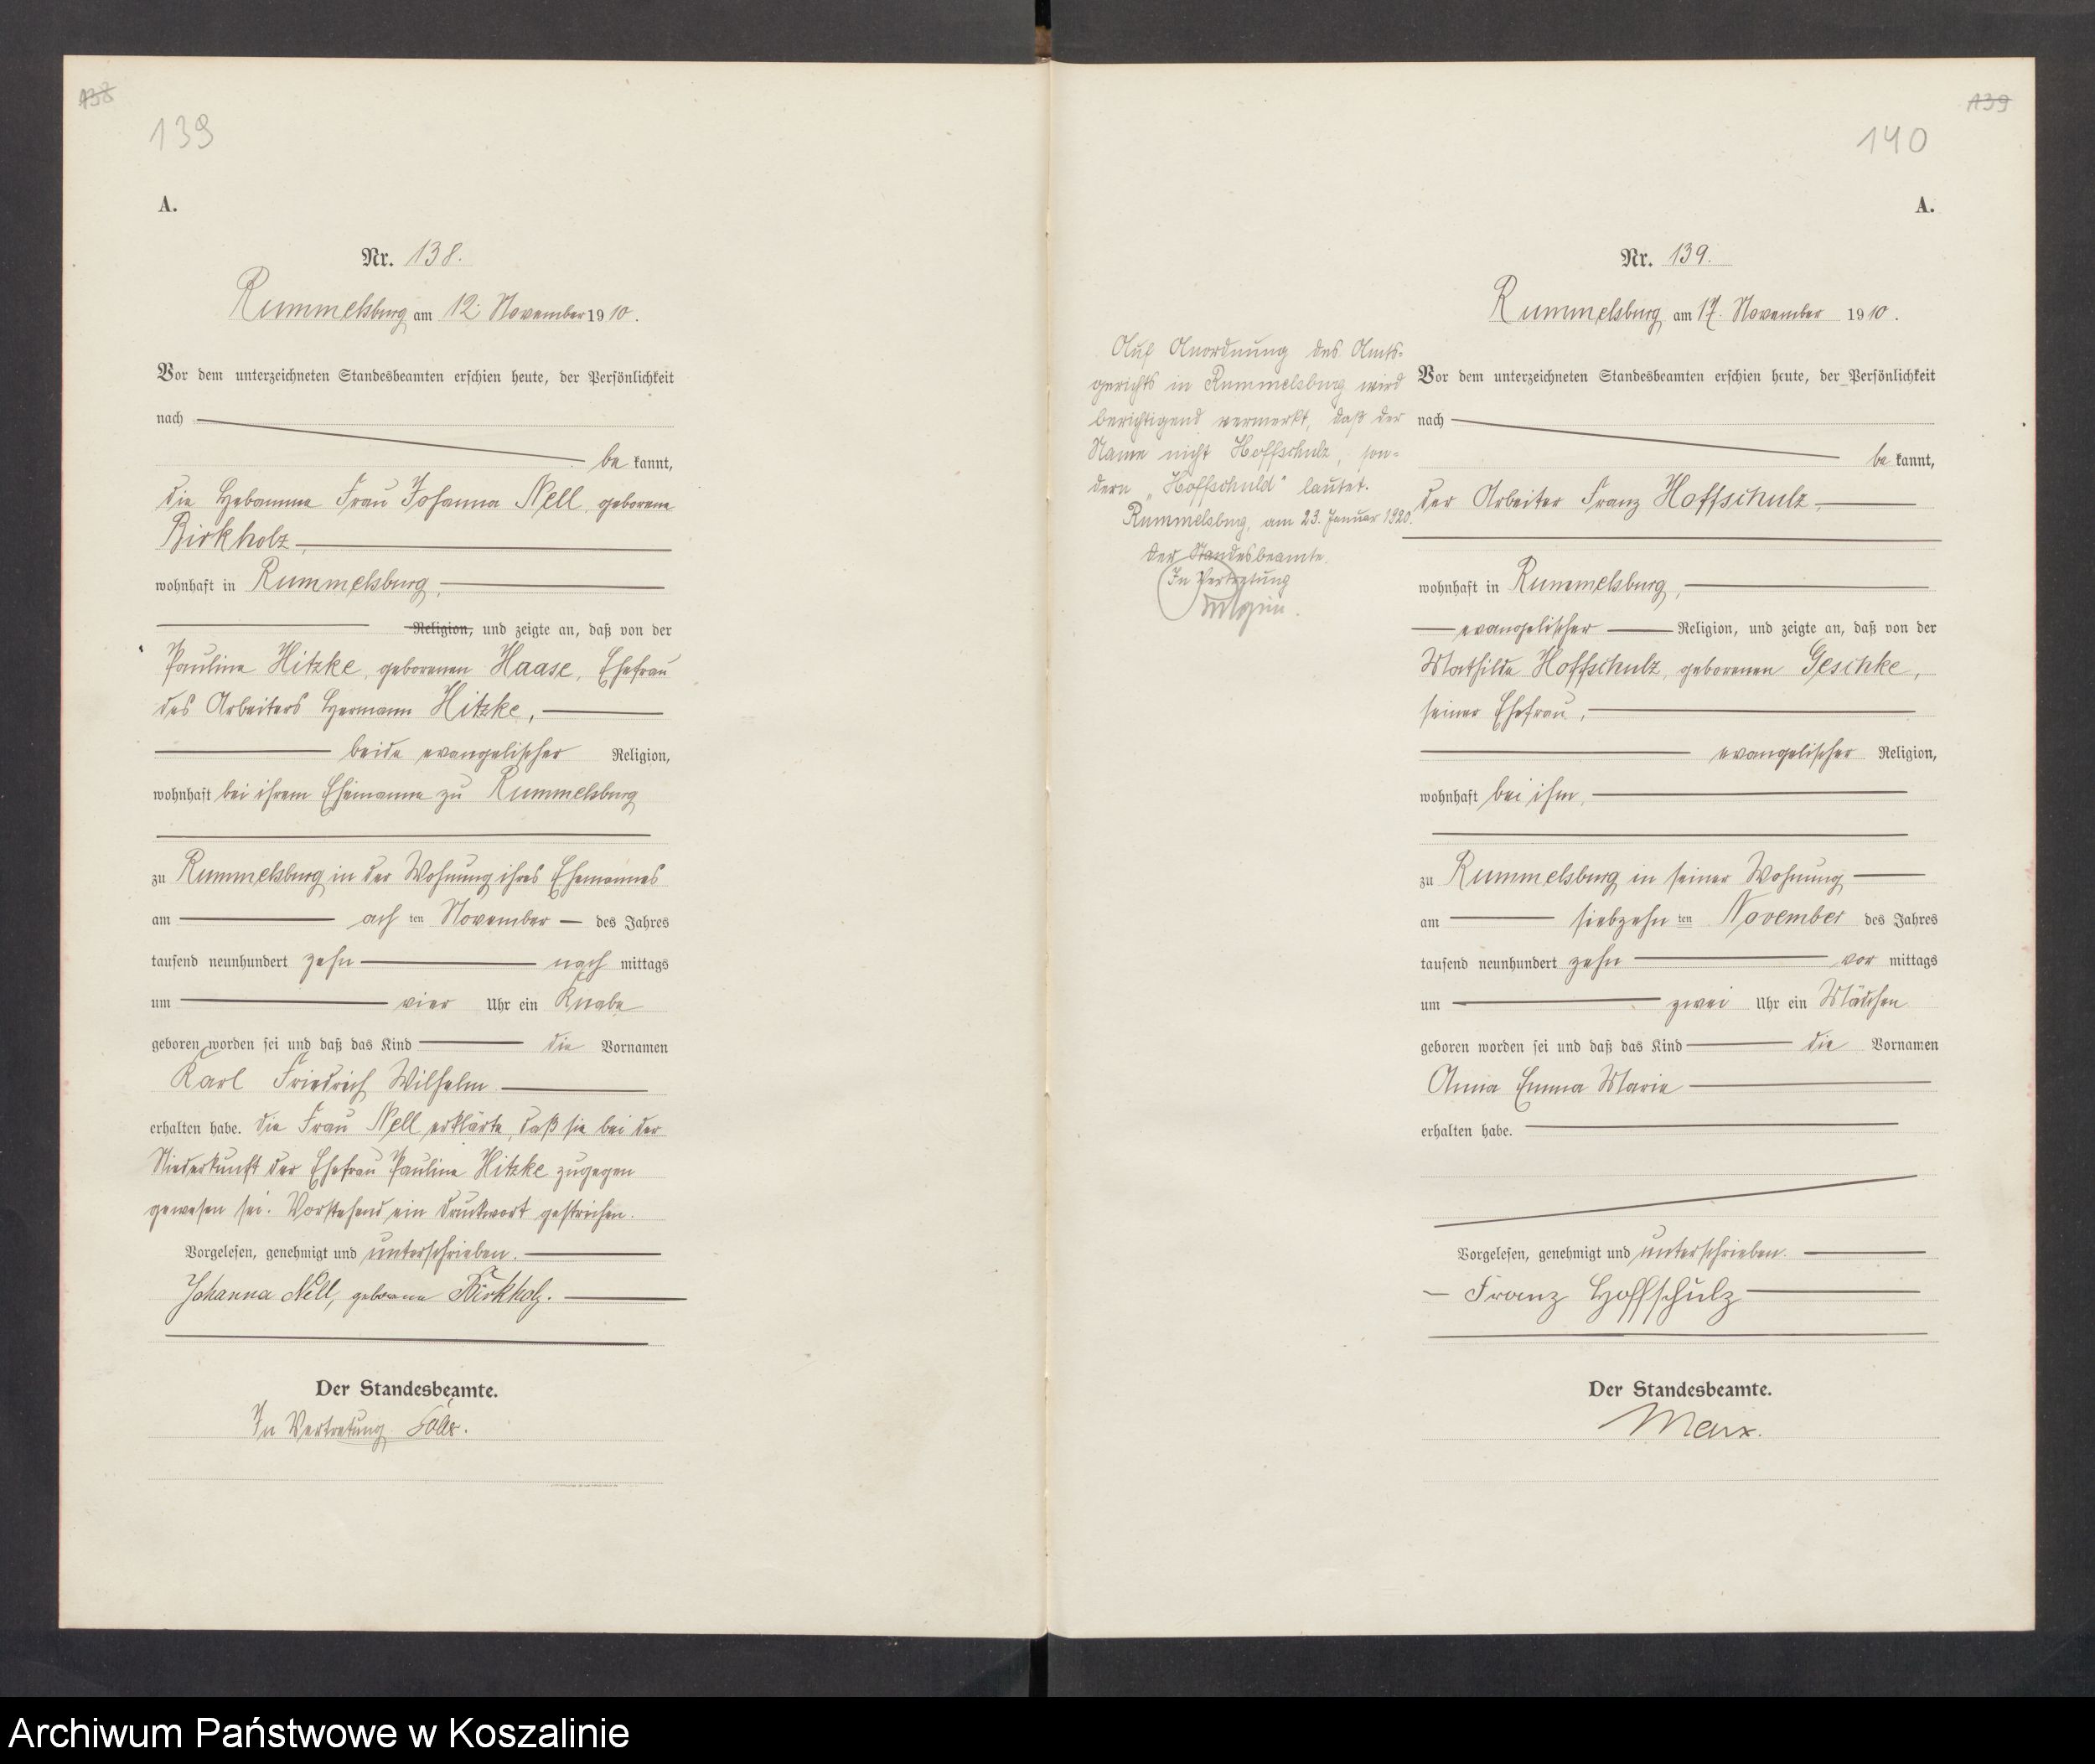 138
139
A.
Nr. 138.
Rummelsburg am 12. November 1910.
Vor dem unterzeichneten Standesbeamten erschien heute, der Persönlichkeit
nach
be kannt,
die Hebamme Frau Johanna Nell, geborene
Birkholz,
wohnhaft in Rummelsburg,
Religion, und zeigte an, daß von der
Pauline Hitzke, geborenen Haase, Ehefrau
des Arbeiters Hermann Hitzke,
beide evangelischer Religion,
wohnhaft bei ihrem Ehemanne zu Rummelsburg
zu Rummelsburg in der Wohnung ihres Ehemannes
am ach ten November des Jahres
tausend neunhundert zehn nach mittags
um vier Uhr ein Knabe
geboren worden sei und daß das Kind die Vornamen
Karl Friedrich Wilhelm
erhalten habe. Die Frau Nell erklärte, daß sie bei der
Niederkunft der Ehefrau Pauline Hitzke zugegen
gewesen sei. Vorstehend ein Druckwort gestrichen.
Vorgelesen, genehmigt und unterschrieben.
Johanna Nell, geborene Birkholz.
Der Standesbeamte.
In Vertretung
139
140
A.
Nr. 139.
Rummelsburg am 17. November 1910.
Auf Anordnung des Amts-
gerichts in Rummelsburg wird
berichtigend vermerkt, daß der
Name nicht Hoffschulz, son-
dern „Hoffschuld" lautet.
Rummelsburg, am 23. Januar 1920.
Der Standesbeamte.
In Vertretung
Vor dem unterzeichneten Standesbeamten erschien heute, der Persönlichkeit
nach
be kannt,
der Arbeiter Franz Hoffschulz,
wohnhaft in Rummelsburg,
evangelischer Religion, und zeigte an, daß von der
Mathilde Hoffschulz, geborenen Geschke,
seiner Ehefrau,
evangelischer Religion,
wohnhaft bei ihm,
zu Rummelsburg in seiner Wohnung
am siebzehn ten November des Jahres
tausend neunhundert zehn vor mittags
um zwei Uhr ein Mädchen
geboren worden sei und daß das Kind die Vornamen
Anna Emma Marie
erhalten habe.
Vorgelesen, genehmigt und unterschrieben.
Franz Hoffschulz
Der Standesbeamte.
Marx.
Archiwum Państwowe w Koszalinie